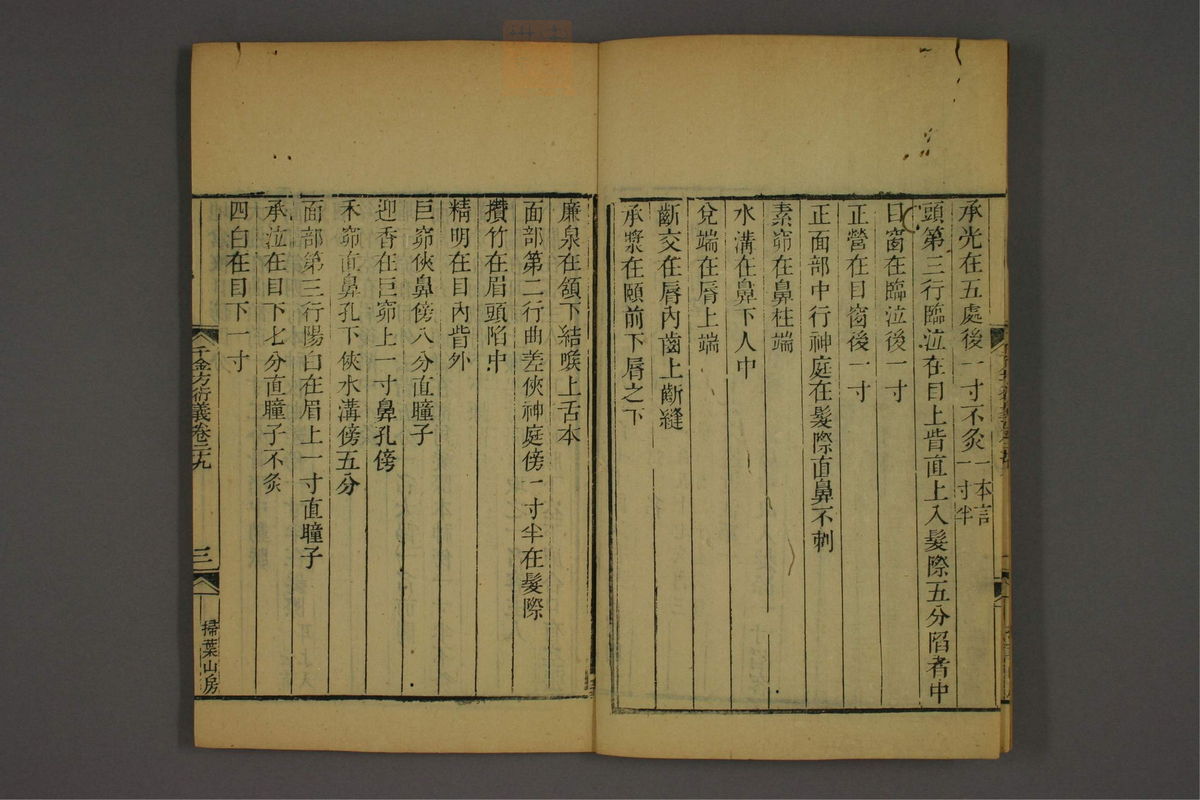 承光在五處後一寸不灸一本言一寸半
頭第三行臨泣在目上眥直上入髮際五分陷者中
目窗在臨泣後一寸
正營在目窗後一寸
正面部中行神庭在髮際直鼻不刺
素窌在鼻柱端
水溝在鼻下人中
兌端在脣上端
齗交在脣內齒上齗縫
承漿在頤前下脣之下
廉泉在頷下結喉上舌本
面部第二行曲差俠神庭傍一寸半在髮際
攢竹在眉頭陷中
精明在目內眥外
巨窌俠鼻傍八分直瞳子
迎香在巨窌上一寸鼻孔傍
禾窌直鼻孔下俠水溝傍五分
面部第三行陽白在眉上一寸直瞳子
承泣在目下七分直瞳子不灸
四白在目下一寸
千金方衍義卷二十九
三
掃葉山房